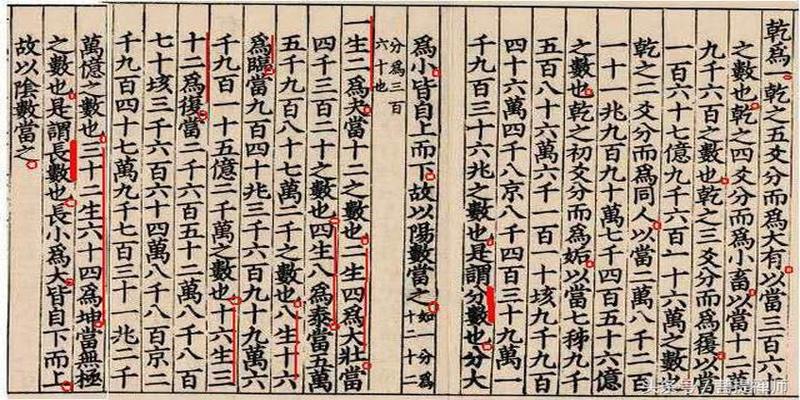 乾爲一乾之五爻分而爲大有以當三百六
之數也乾之四爻分而爲小畜以當十二萬
九千六百之數也乾之三爻分而爲履以當
一百六十七億九千六百一十六萬之數也
乾之二爻分而爲同人以當二萬八千二百
一十一兆九百九十萬七千四百五十六億
之數也乾之初爻分而爲姤以當七秭九千
五百八十六萬六千一百一十垓九千九百
四十六萬四千八京八千四百三十九萬一
千九百三十六兆之數也是謂分數也分大
爲小皆自上而下故以陽數當之
如一分爲
十二十二
分爲三百
六十也
一生二爲夬當十二之數也二生四爲大壯當
四千三百二十之數也四生八爲泰當五萬
五千九百八十七萬二千之數也八生十六
爲臨當九百四十兆三千六百九十九萬六
千九百一十五億二千萬之數也十六生三
十二爲復當二千六百五十二萬八千八百
七十垓三千六百六十四萬八千八百京二
千九百四十七萬九千七百三十一兆二千
萬億之數也三十二生六十四爲坤當無極
之數也是謂長數也長小爲大皆自下而上
故以陰數當之
头条号/菩提禅师